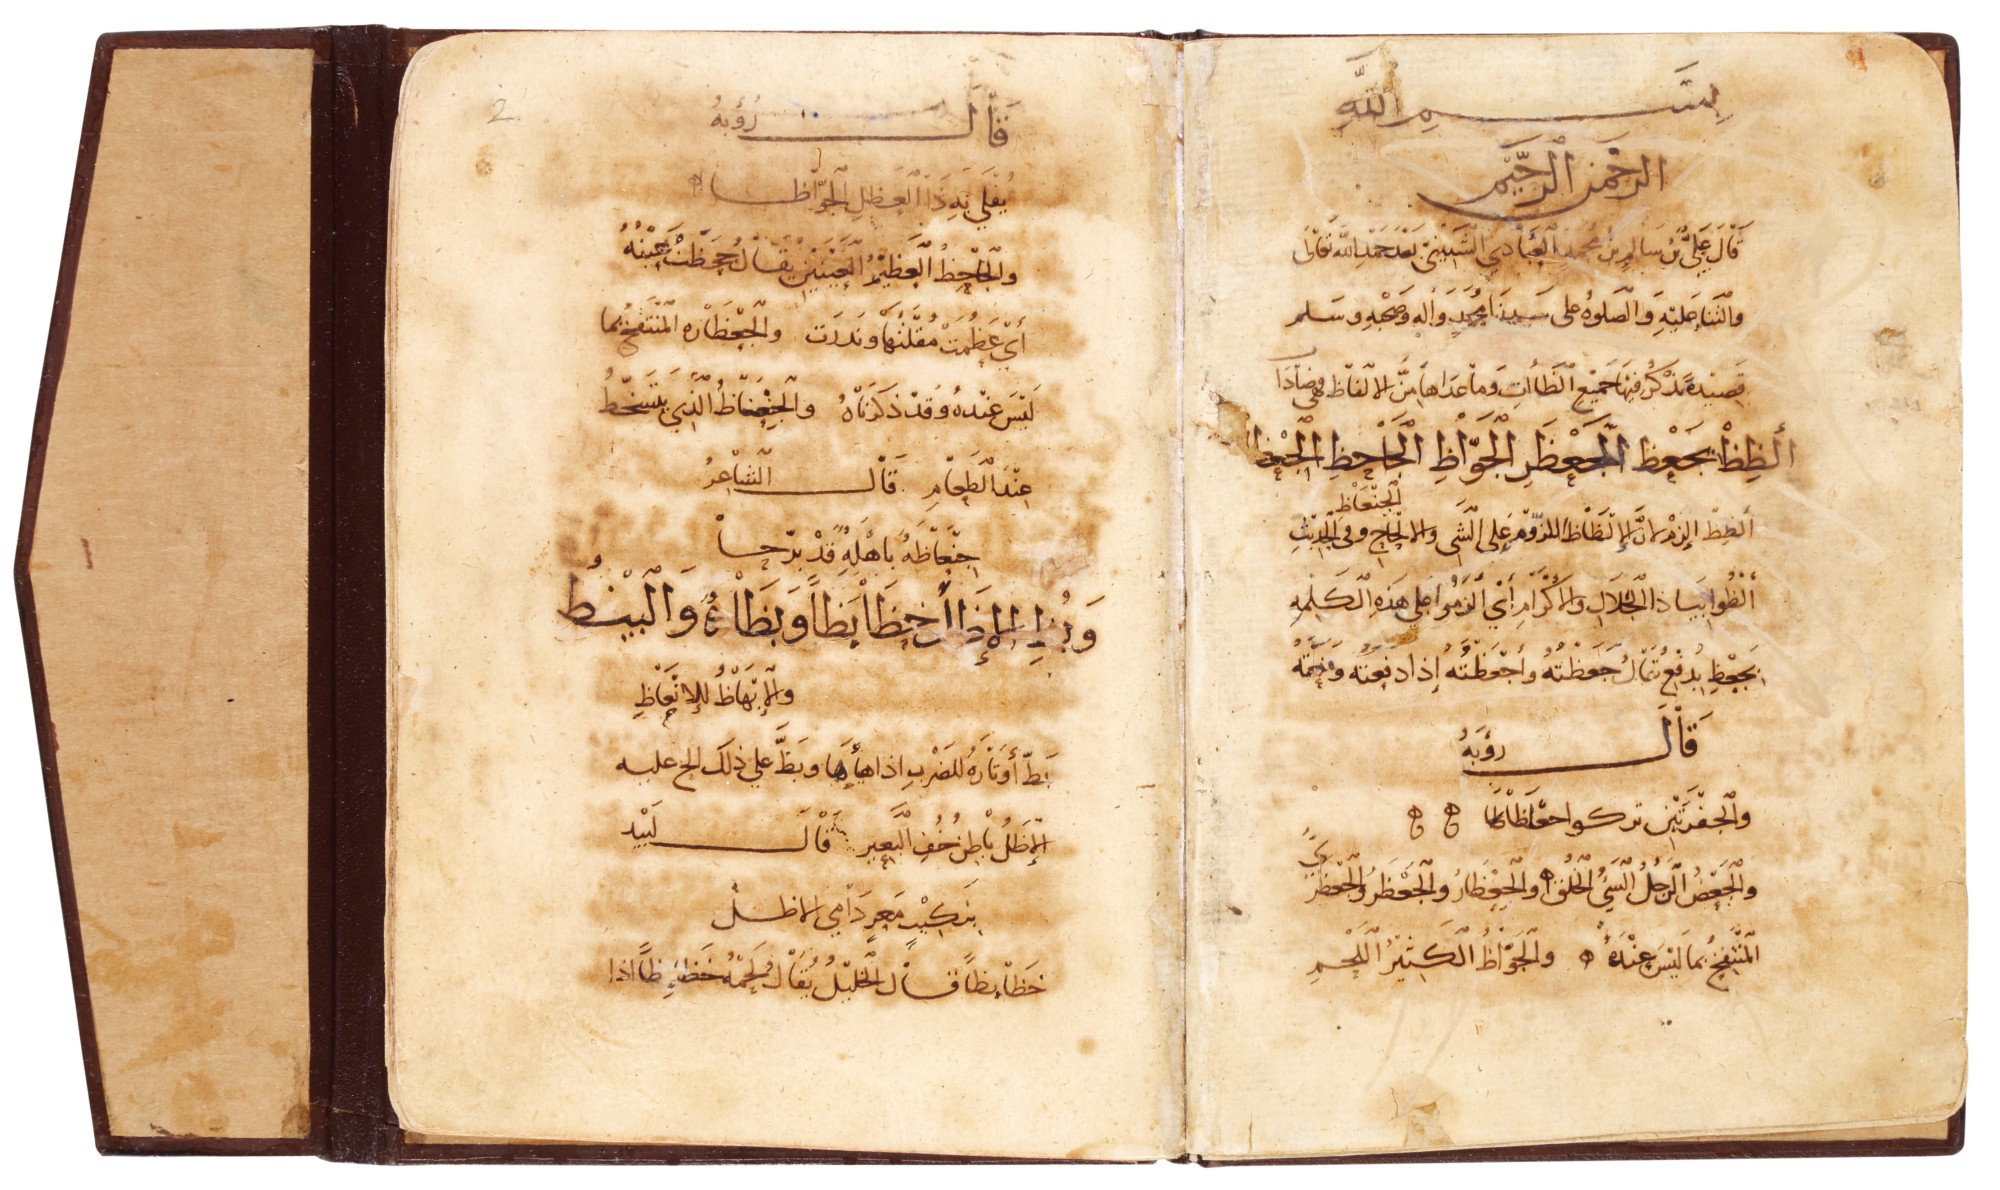 بسم الله
الرحمن الرحيم
قال علي بن سالم بن محمد العبادي الشبيني بعد حمد الله تعالى
والثنا عليه والصلوة على سيدنا محمد واله وصحبه وسلم
قصيدة نذكر فيها جميع الظاءات وما عداها من الالفاظ فهي ضاد
ألظظ بجعظ الجعظر الجواظ الجاحظ
الجنعاظ
ألظظ الزم لان الإلظاظ اللزوم على الشى والالحاح وفي الحديث
ألظوا بيا ذا الجلال والاكرام أي ألزموا على هذه الكلمه
بجعظ بدفع يقال جعظته وأجعظته إذا دفعته
قال رؤبة
والجفرتين تركوا
والجعظ الرجل السيئ الخلق ه والجعظار والجعظر والجعظري
المنتفخ بما ليس عنده ه والجواظ الكثير اللحم
2
قال رؤبة
يعلي به ذا العضل الجواظا ه
والجاحظ العظيم العينين يقال جحظت عينه
أي عظمت مقلتها وندرت والجعظاره المنتفخ بما
ليس عنده وقد ذكرناه والجنعاظ الذي يتسخط
عند الطعام قال الشاعر
جنعاظة باهله قد برحا
وبظ الإظل أخظا بظا وبظاء والبيظ
والإبهاظ للإنعاظ
بظ أوتاره للضرب اذا هيأها وبظ على ذلك الح عليه
الاظل باطن خف البعير قال لبيد
بنكيب معر دامي الاظل
خظا بظا قال الخليل يقال لحمه خظا بظا اذا